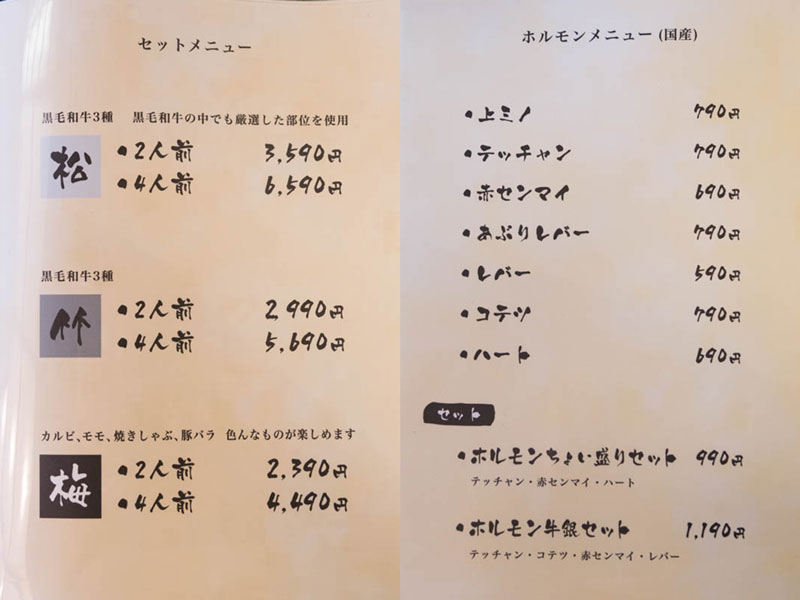 セットメニュー
黒毛和牛3種 黒毛和牛の中でも厳選した部位を使用
松
・2人前 3,590円
・4人前 6,590円
黒毛和牛3種
竹
・2人前 2,990円
・4人前 5,690円
カルビ、モモ、焼きしゃぶ、豚バラ 色んなものが楽しめます
梅
・2人前 2,390円
・4人前 4,490円
ホルモンメニュー (国産)
・上ミノ 790円
・テッチャン 790円
・赤センマイ 690円
・あぶりレバー 790円
・レバー 590円
・コテツ 790円
・ハート 690円
セット
・ホルモンちょい盛りセット 990円
テッチャン・赤センマイ・ハート
・ホルモン牛銀セット 1,190円
テッチャン・コテツ・赤センマイ・レバー